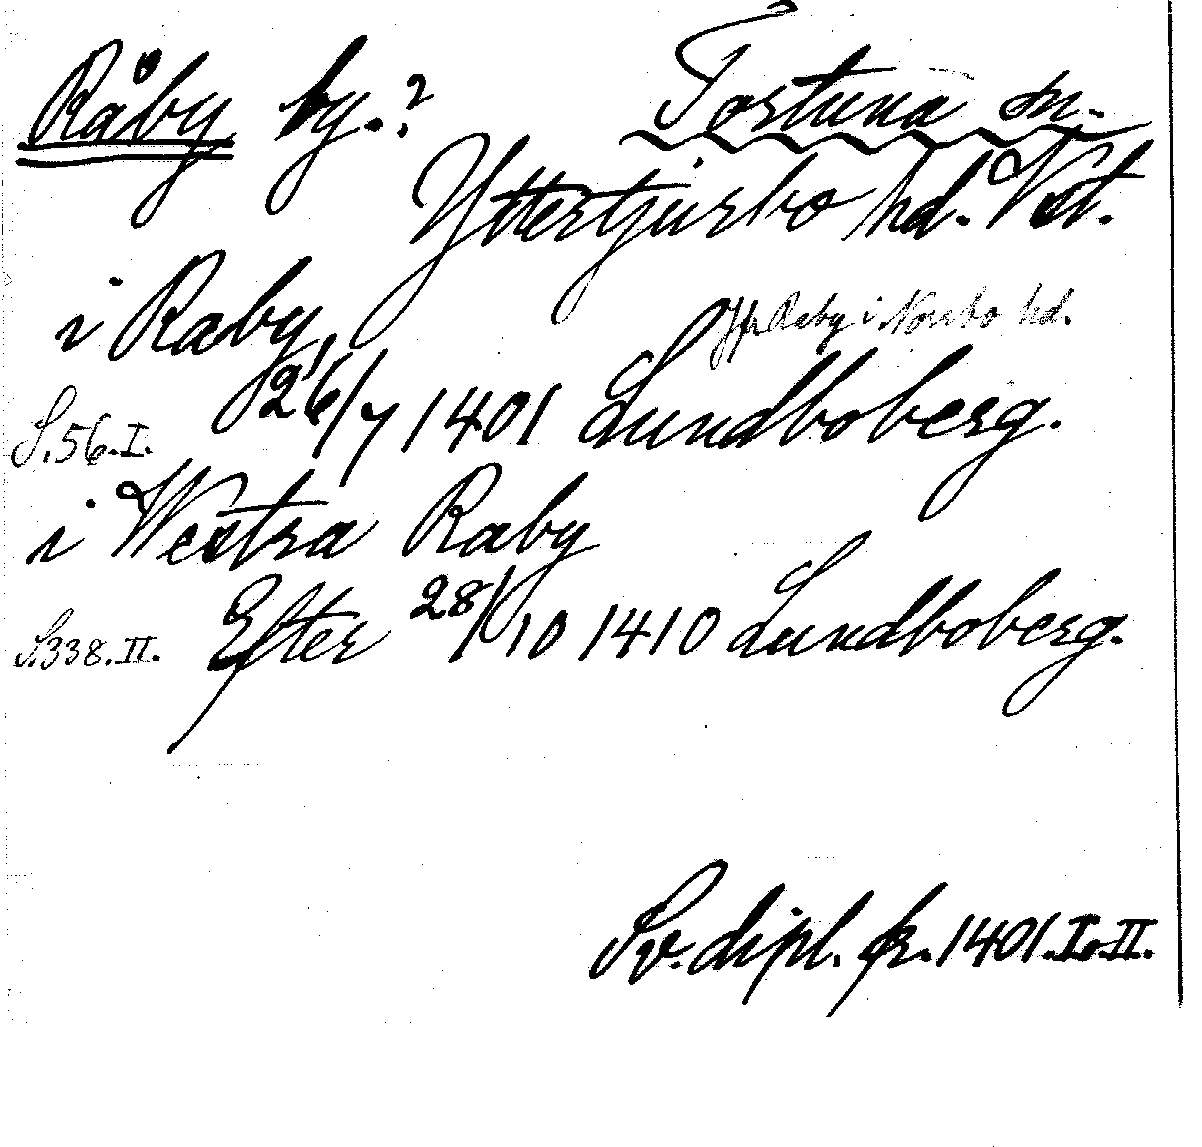 Råby by.? Tortuna sn.
Yttertjurbo hd. Vst.
i Raby Jfr Råby i Norrbo hd.
S.56.I. 26/7 1401 Lundboberg.
i Westra Raby
S.338.II. Efter 28/10 1410 Lundboberg.
Sv. dipl. fr. 1401. I. II.